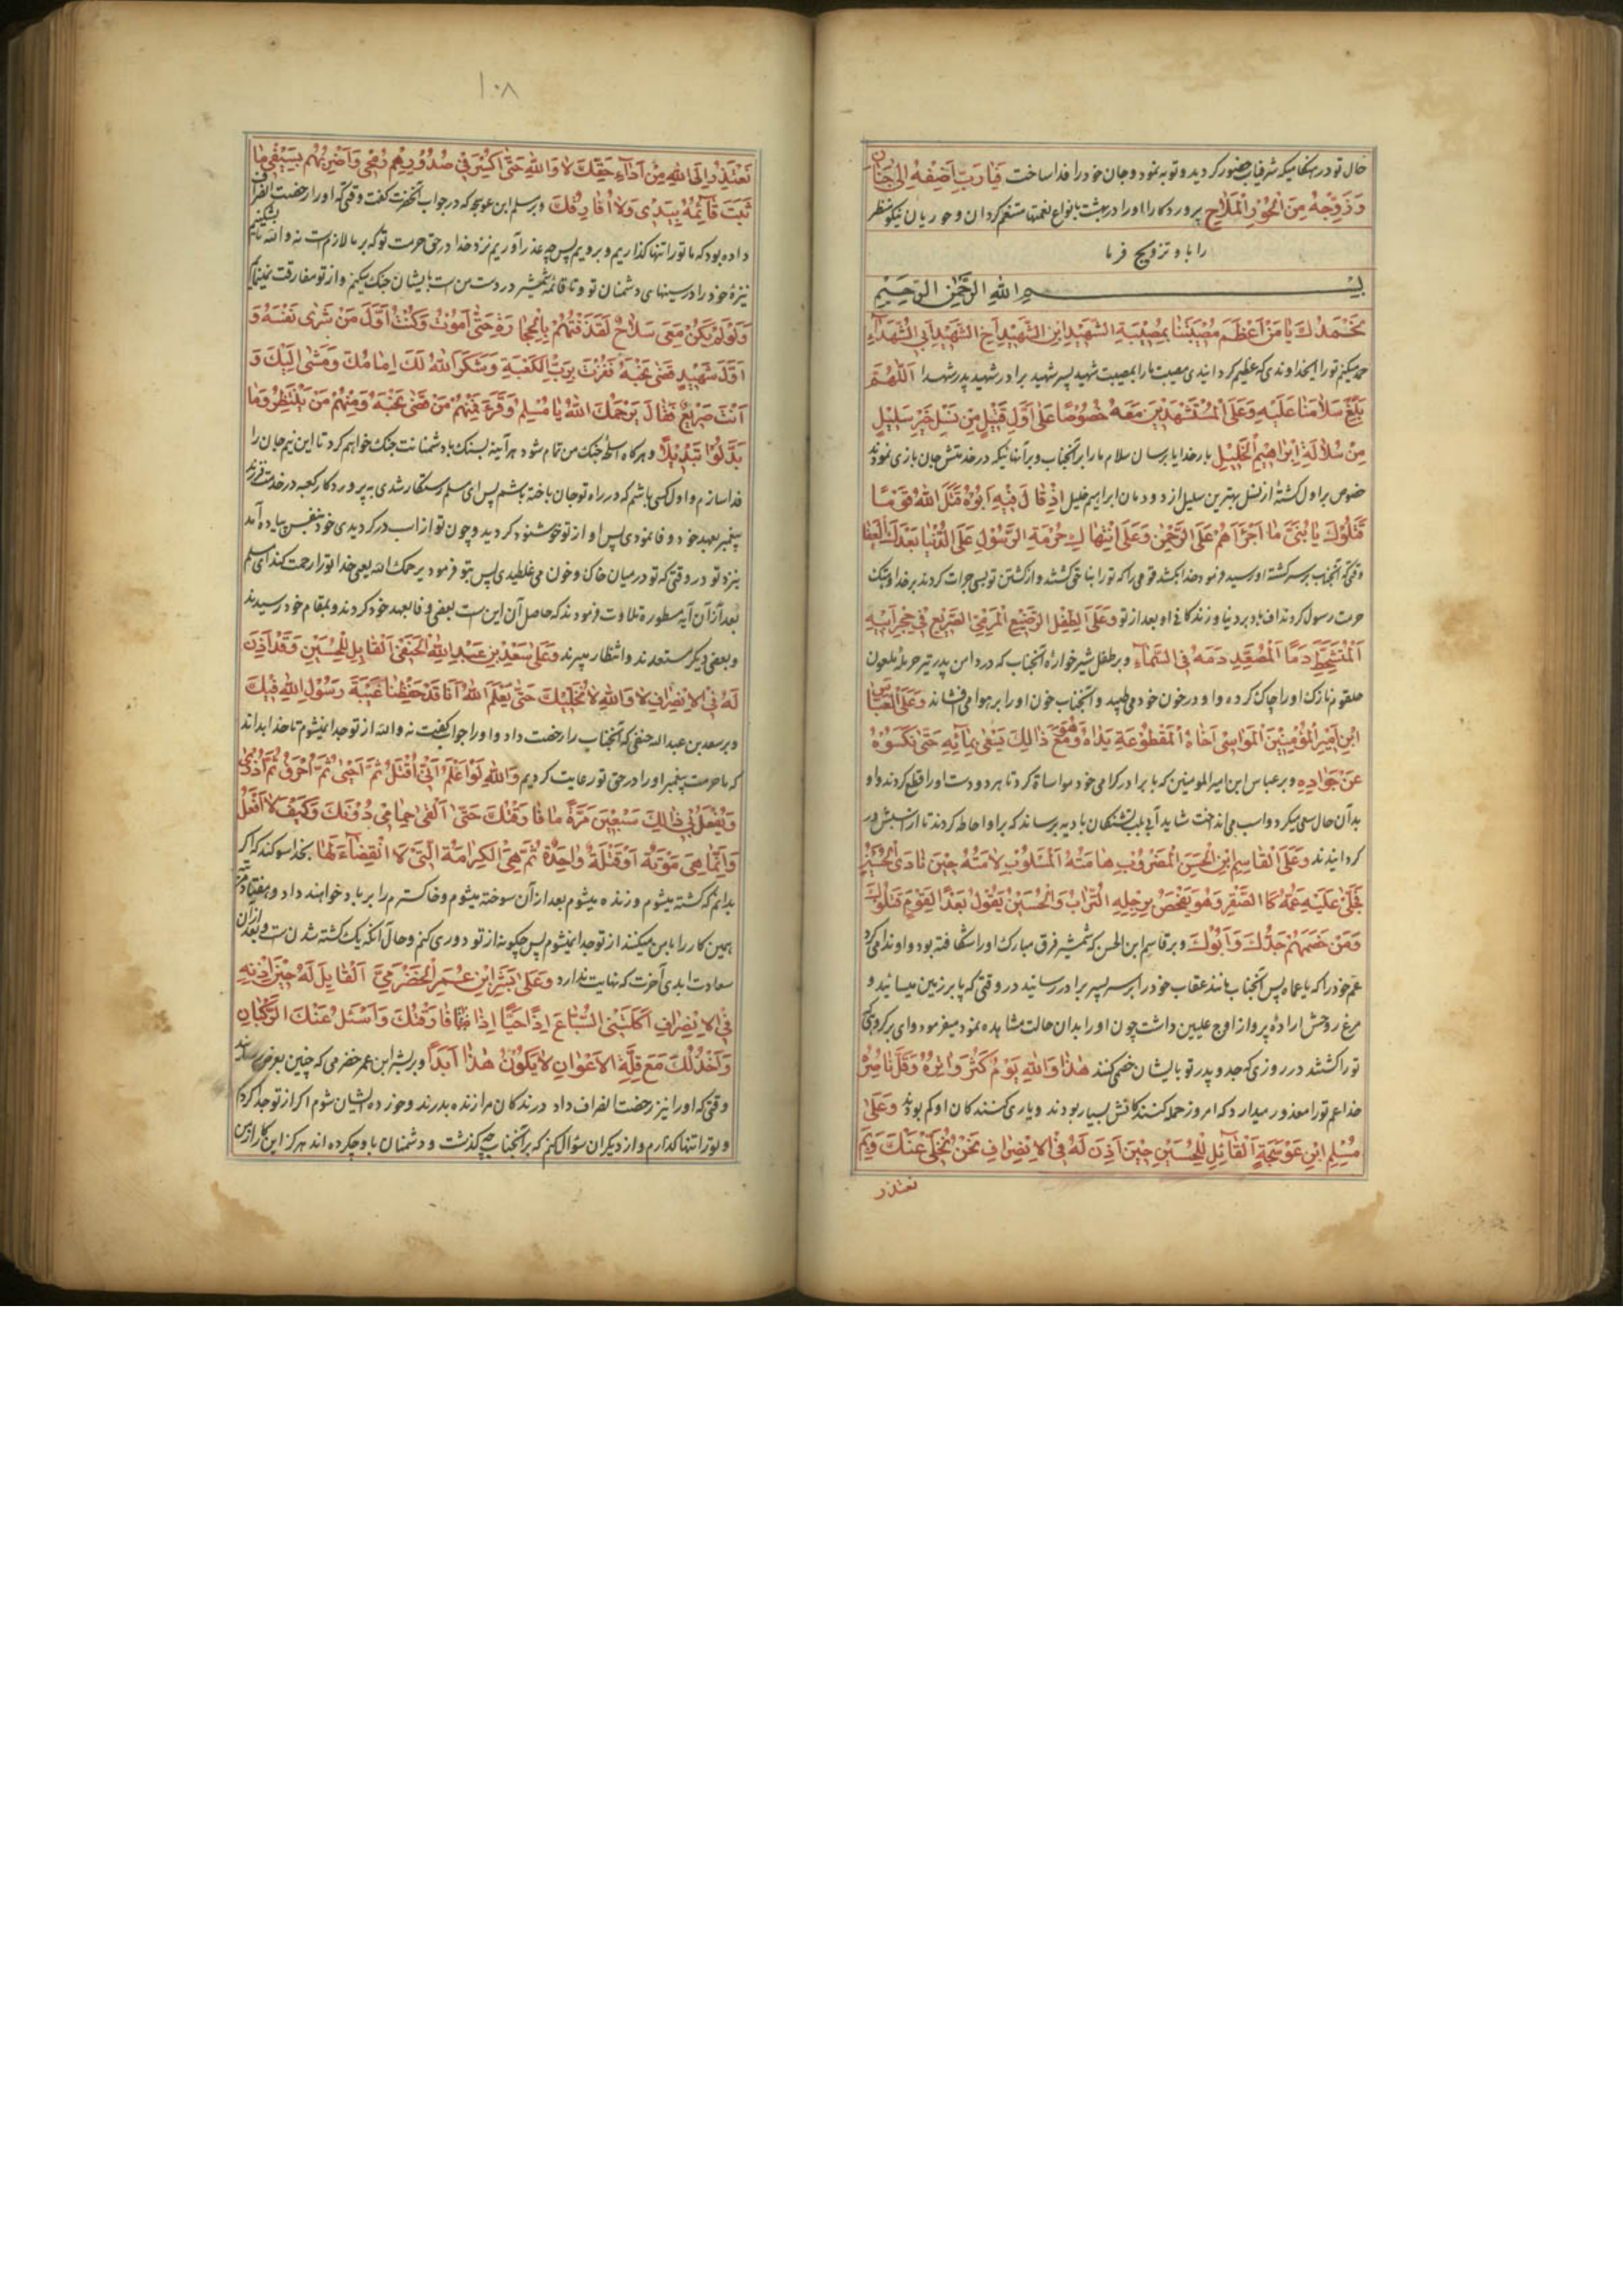 حال تو در هنگامیکه شرفیاب حضور کردید و توبه نمود و جان خود را فدا ساخت فَيَا رَبِّ اَضِفْهُ اِلىٰ جَنَانِ
وَ زَوِّجْهُ مِنَ الْحُوْرِ الْمَلَاحِ پروردکارا او را در بهشت بانواع نعمتها متنعم کردان و حوریان نیکو منظر
را با و تزویج فرما
بِسْمِ اللهِ الرَّحْمٰنِ الرَّحِيْمِ
نَحْمَدُكَ يَا مَنْ اَعْظَمَ مُصِيْبَتَنَا بِمُصِيْبَةِ الشَّهِيْدِ ابْنِ الشَّهِيْدِ اَخِ الشَّهِيْدِ اَبِي الشُّهَدَآءِ
حمد میکنم تو را ایخداوندی که عظیم کردانیدی مصیبت ما را بمصیبت شهید پسر شهید برادر شهید پدر شهدا اَللّٰهُمَّ
بَلِّغْ سَلَامَنَا عَلَيْهِ وَعَلَى الْمُسْتَشْهَدِيْنَ مَعَهُ خُصُوْصًا عَلىٰ اَوَّلِ قَتِيْلٍ مِنْ نَسْلِ خَيْرِ سَلِيْلٍ
مِنْ سُلَالَةِ اِبْرَاهِيْمَ الْخَلِيْلِ بارخدایا برسان سلام ما را بر آنجناب و بر آنهائیکه در خدمتش جان بازی نمودند
خصوص بر اول کشتهٔ از نسل بهترین سلیل از دودمان ابراهیم خلیل اِذْ قَالَ فِيْهِ اَبُوْهُ قَتَلَ اللهُ قَوْمًا
قَتَلُوْكَ يَا بُنَيَّ مَا اَجْرَاَهُمْ عَلَى الرَّحْمٰنِ وَعَلَى انْتِهَاكِ حُرْمَةِ الرَّسُوْلِ عَلَى الدُّنْيَا بَعْدَكَ الْعَفَا
وقتیکه آنجناب بر سر کشته او رسید فرمود خدا بکشد قومی را که تو را بناحق کشتند و از کشتن تو بسی جرات کردند بر خدا و هتک
حرمت رسول کردند اف باد بر دنیا و زندکانی او بعد از تو وَعَلَى الطِّفْلِ الرَّضِيْعِ الْمَرْمِيِّ الصَّرِيْعِ فِيْ حِجْرِ اَبِيْهِ
اَلْمُتَشَحِّطِ دَمًا اَلْمُصْعَدِ دَمُهُ فِي السَّمَآءِ و بر طفل شیرخوارهٔ آنجناب که در دامن پدر تیر حرملهٔ ملعون
حلقوم نازک او را چاک کرده و او در خون خود می طپید و آنجناب خون او را بر هوا می افشاند وَعَلَى الْعَبَّاسِ
ابْنِ اَمِيْرِ الْمُؤْمِنِيْنَ الْمَوَاسِيْ اَخَاهُ الْمَقْطُوْعَةِ يَدَاهُ وَهُوَ مَعَ ذَالِكَ يَسْعىٰ بِمَآئِهِ حَتّىٰ نَكَسُوْهُ
عَنْ جَوَادِهِ و بر عباس ابن امیرالمومنین که با برادر کرامی خود مواساة کرد تا هر دو دست او را قطع کردند و او
بدآن حال سعی میکرد و اسب می انداخت شاید آبی بلب تشنکان بادیه برساند که بر او احاطه کردند تا از اسبش دور
کردانیدند وَعَلَى الْقَاسِمِ ابْنِ الْحَسَنِ الْمَضْرُوْبِ هَامَتُهُ اَلْمَسْلُوْبِ لَامَتُهُ حِيْنَ نَادَى الْحُسَيْنَ
فَجَلىٰ عَلَيْهِ عَمُّهُ كَا الصَّقْرِ وَهُوَ يَفْحَصُ بِرِجْلِهِ التُّرَابَ وَالْحُسَيْنُ يَقُوْلُ بُعْدًا لِقَوْمٍ قَتَلُوْكَ
وَمَنْ خَصْمُهُمْ جَدُّكَ وَاَبُوْكَ و بر قاسم ابن الحسن که شمشیر فرق مبارک او را شکافته بود و او ندا می کرد
عم خود را که یا عماه پس آنجناب مانند عقاب خود را بر سر پسر برادر رسانید در وقتی که پا بر زمین میسائید و
مرغ روحش ارادهٔ پرواز اوج علیین داشت چون او را بدان حالت مشاهده نمود میفرمود وای بر کروهیکه
تو را کشتند در روزی که جد و پدر تو با ایشان خصمی کنند هٰذَا وَاللهِ يَوْمٌ كَثُرَ وَاتِرُهُ وَقَلَّ نَاصِرُهُ
خدا عم تو را معذور میدارد که امروز حمله کنندکانش بسیار بودند و یاری کنندکان او کم بودند وَعَلىٰ
مُسْلِمِ ابْنِ عَوْسَجَةَ اَلْقَائِلِ لِلْحُسَيْنِ حِيْنَ اَذِنَ لَهُ فِي الْاِنْصِرَافِ نَحْنُ نُخَلِّيْ عَنْكَ وَبِمَ
نعتذر
۱۰۸
نَعْتَذِرُ اِلَى اللهِ مِنْ اَدَآءِ حَقِّكَ لَا وَاللهِ حَتّىٰ اَكْسِرَ فِيْ صُدُوْرِهِمْ رُمْحِيْ وَاَضْرِبُهُمْ بِسَيْفِيْ مَا
ثَبَتَ قَآئِمُهُ بِيَدِيْ وَلَا اُفَارِقُكَ و بر مسلم ابن عوسجه که در جواب آنحضرت کفت وقتیکه او را رخصت انصراف
داده بود که ما تو را تنها کذاریم و برویم پس چه عذر آوریم نزد خدا در حق حرمت تو که بر ما لازم است نه والله تا بشکنم
نیزهٔ خود را در سینهای دشمنان تو و تا قائمهٔ شمشیر در دست من است با ایشان جنک میکنم و از تو مفارقت نمینمایم
وَلَوْ لَمْ يَكُنْ مَعِيَ سَلَاحٌ لَقَذَفْتُهُمْ بِالْحِجَارَةِ حَتّىٰ اَمُوْتَ وَكُنْتَ اَوَّلَ مَنْ شَرىٰ نَفْسَهُ وَ
اَوَّلَ شَهِيْدٍ قَضىٰ نَحْبَهُ فَفُزْتَ بِرَبِّ الْكَعْبَةِ وَشَكَرَ اللهُ لَكَ اِمَامُكَ وَمَشىٰ اِلَيْكَ وَ
اَنْتَ صَرِيْعٌ فَقَالَ يَرْحَمُكَ اللهُ يَا مُسْلِمُ وَقَرَءَ فَمِنْهُمْ مَنْ قَضىٰ نَحْبَهُ وَمِنْهُمْ مَنْ يَنْتَظِرُ وَمَا
بَدَّلُوْا تَبْدِيْلًا و هر کاه اسلحهٔ جنک من تمام شود هر آینه بسنک با دشمنانت جنک خواهم کرد تا این نیم جان را
فدا سازم و اول کسی باشم که در راه تو جان باخته باشم پس ای مسلم رستکار شدی به پروردکار کعبه در خدمت فرزند
پیغمبر بعهد خود وفا نمودی پس او از تو خوشنود کردید و چون تو از اسب در کردیدی خود بنفس پیاده آمد
بنزد تو در وقتی که تو در میان خاک و خون می غلطیدی پس بتو فرمود یرحمک الله یعنی خدا تو را رحمت کند ای مسلم
بعد از آن آیه مسطوره تلاوت فرمودند که حاصل آن این است بعضی وفا بعهد خود کردند و بمقام خود رسیدند
و بعضی دیکر مستعدند و انتظار میبرند وَعَلىٰ سَعْدِ بْنِ عَبْدِ اللهِ الْحَنَفِيِّ اَلْقَايِلِ لِلْحُسَيْنِ وَقَدْ اَذِنَ
لَهُ فِي الْاِنْصِرَافِ لَا وَاللهِ لَا نُخَلِّيْكَ حَتّىٰ يَعْلَمَ اللهُ اَنَّا قَدْ حَفِظْنَا غَيْبَةَ رَسُوْلِ اللهِ فِيْكَ
و بر سعد بن عبدالله حنفی که آنجناب را رخصت داد و او را جواب کفت نه والله از تو جدا نمیشوم تا خدا بداند
که ما حرمت پیغمبر او را در حق تو رعایت کردیم وَاللهِ لَوْ اَعْلَمُ اَنِّيْ اُقْتَلُ ثُمَّ اُحْيىٰ ثُمَّ اُحْرَقُ ثُمَّ اُذْرىٰ
وَيُفْعَلُ بِيْ ذَالِكَ سَبْعِيْنَ مَرَّةً مَا فَارَقْتُكَ حَتّىٰ اَلْقىٰ حِمَامِيْ دُوْنَكَ وَكَيْفَ لَا اَفْعَلُ
وَاِنَّمَا هِيَ مَوْتَةٌ اَوْ قَتْلَةٌ وَاحِدَةٌ ثُمَّ هِيَ الْكَرَامَةُ الَّتِيْ لَا انْقِضَآءَ لَهَا بخدا سوکند که اکر
بدانم که کشته میشوم و زنده میشوم بعد از آن سوخته میشوم و خاکسترم را بر باد خواهند داد و هفتاد مرتبه
همین کار را با من میکنند از تو جدا نمیشوم پس چکونه از تو دوری کنم و حال آنکه یک کشته شدن است و بعد از آن
سعادت ابدی آخرت که نهایت ندارد وَعَلىٰ بِشْرِ ابْنِ عُمَرِ الْحَضْرَمِيِّ اَلْقَايِلِ لَهُ حِيْنَ اَذِنَهُ
فِي الْاِنْصِرَافِ اَكَلَتْنِي السِّبَاعُ اِذًا حَيًّا اِذَا فَارَقْتُكَ وَاَسْئَلُ عَنْكَ الرُّكْبَانَ
وَاَخْذُلُكَ مَعَ قِلَّةِ الْاَعْوَانِ لَا يَكُوْنُ هٰذَا اَبَدًا و بر بشر ابن عمر خضرمی که چنین بعرض رسانید
وقتی که او را نیز رخصت انصراف داد درندکان مرا زنده بدرند و خورده ایشان شوم اکر از تو جدا کردم
و تو را تنها کذارم و از دیکران سؤال کنم که بر آنجناب چه کذشت و دشمنان با و چکرده اند هرکز این کار از من